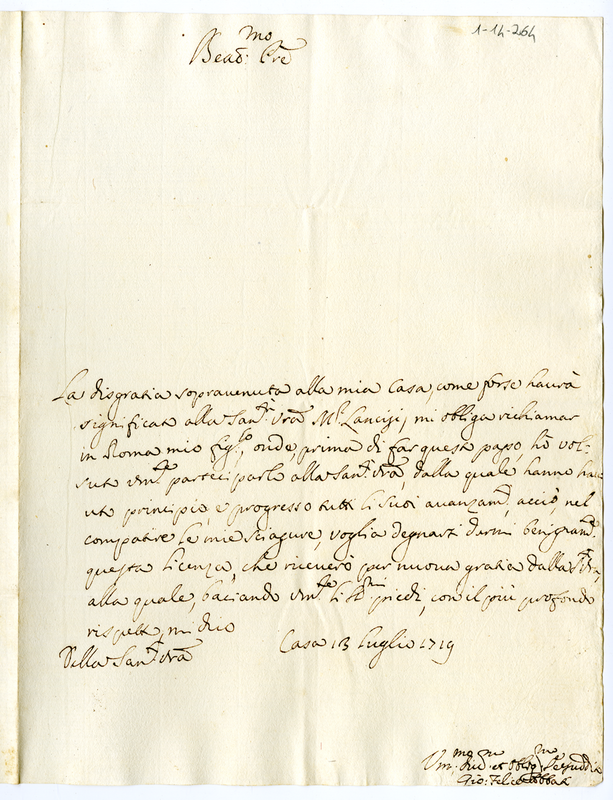 1-14-264
Bead.mo Pre
La disgratia sopravenuta alla mia Casa, come forse haurà
significat alla San.tà Vra M.r Lancisi, mi obliga richiamar
in Roma mio fig.lo, onde, prima di far questo passo, hò vol-
suto um.te parteciparlo alla San.tà Vra, dalla quale hanno hau-
uto principio, e progresso tutti li suoi auanzam.ti, acciò, nel
compatire le mie sciagure, voglia degnarsi darmi benignam.te
questa licenza, che riceuerò per nuoua gratia dalla S.tà V.ra,
alla quale, baciando um.te li S.mi piedi, con il più profondo
rispetto, mi dico
Della San.tà Vra Casa 13 Luglio 1719
Um.mo et Oblig.mo
Gio: Felice